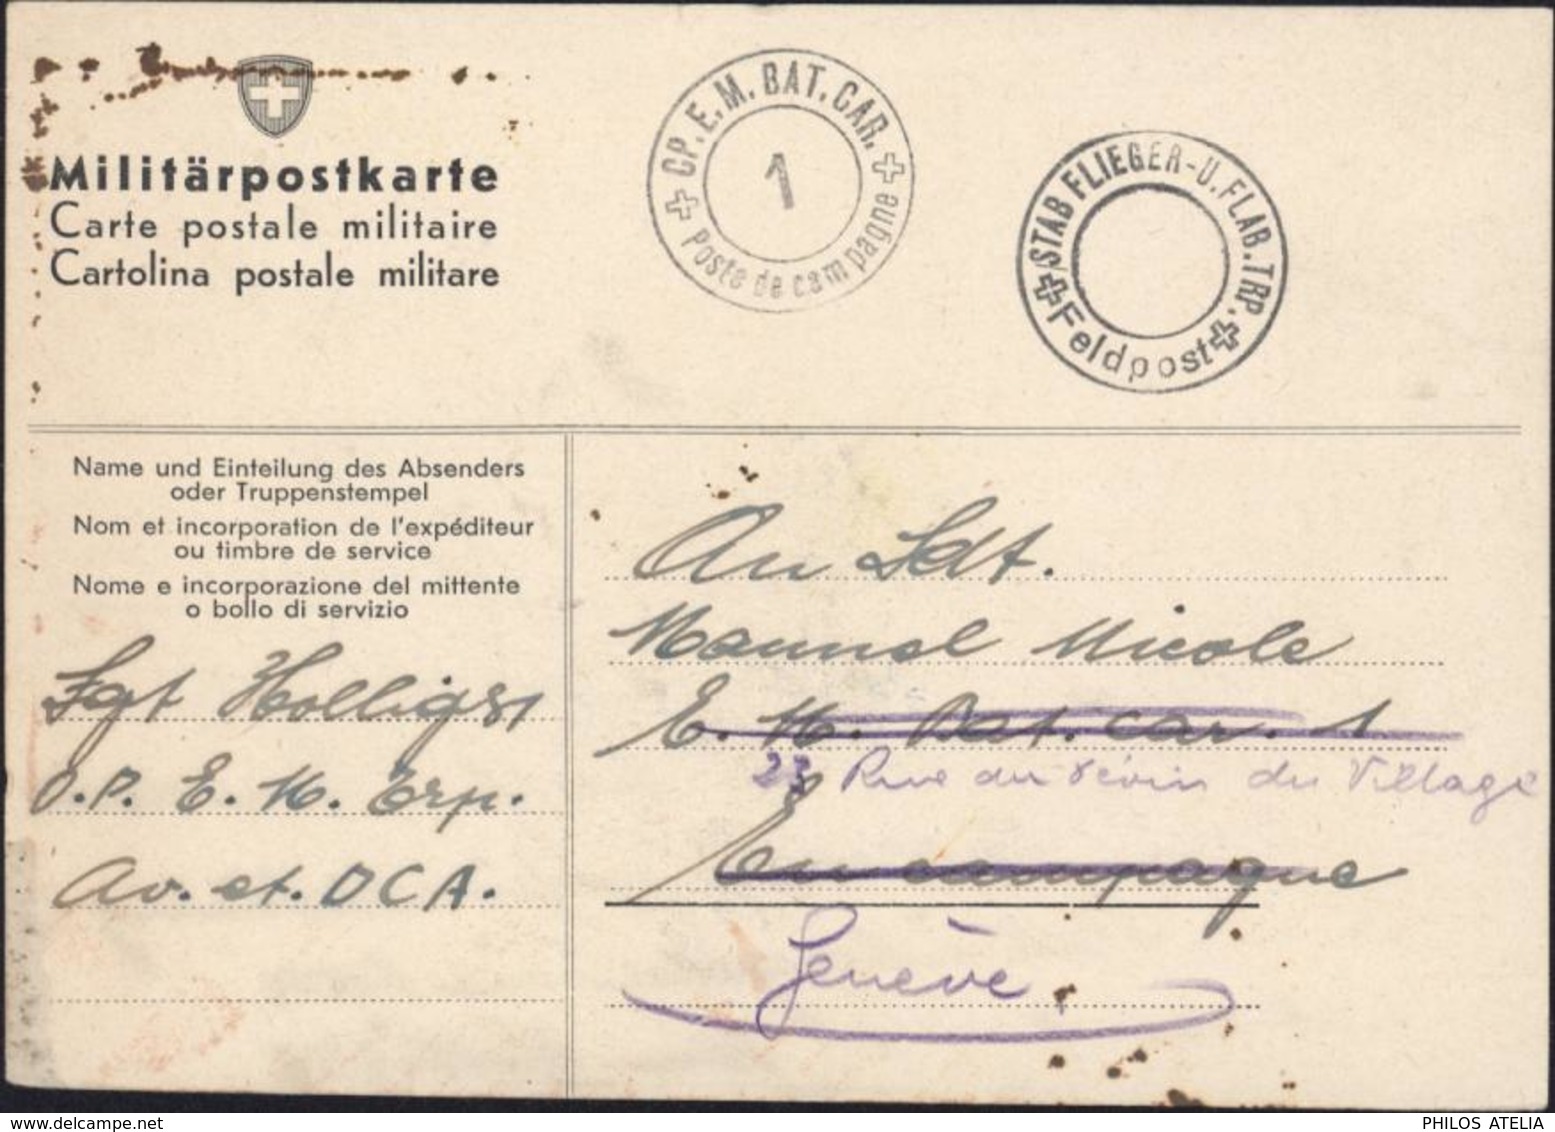 Militärpostkarte
Carte postale militaire
Cartolina postale militare
+ CP. E. M. BAT. CAR. +
1
Poste de campagne
STAB FLIEGER-U. FLAB. TRP.
+ Feldpost +
Name und Einteilung des Absenders
oder Truppenstempel
Nom et incorporation de l'expéditeur
ou timbre de service
Nome e incorporazione del mittente
o bollo di servizio
Sgt Holliger
O.P. E. M. Trp.
Av. et. DCA.
Au Sdt.
Mounol Nicole
E. M. Bat. Car. 1
23 Rue du Village
En campagne
Genève
PHILOS ATELIA